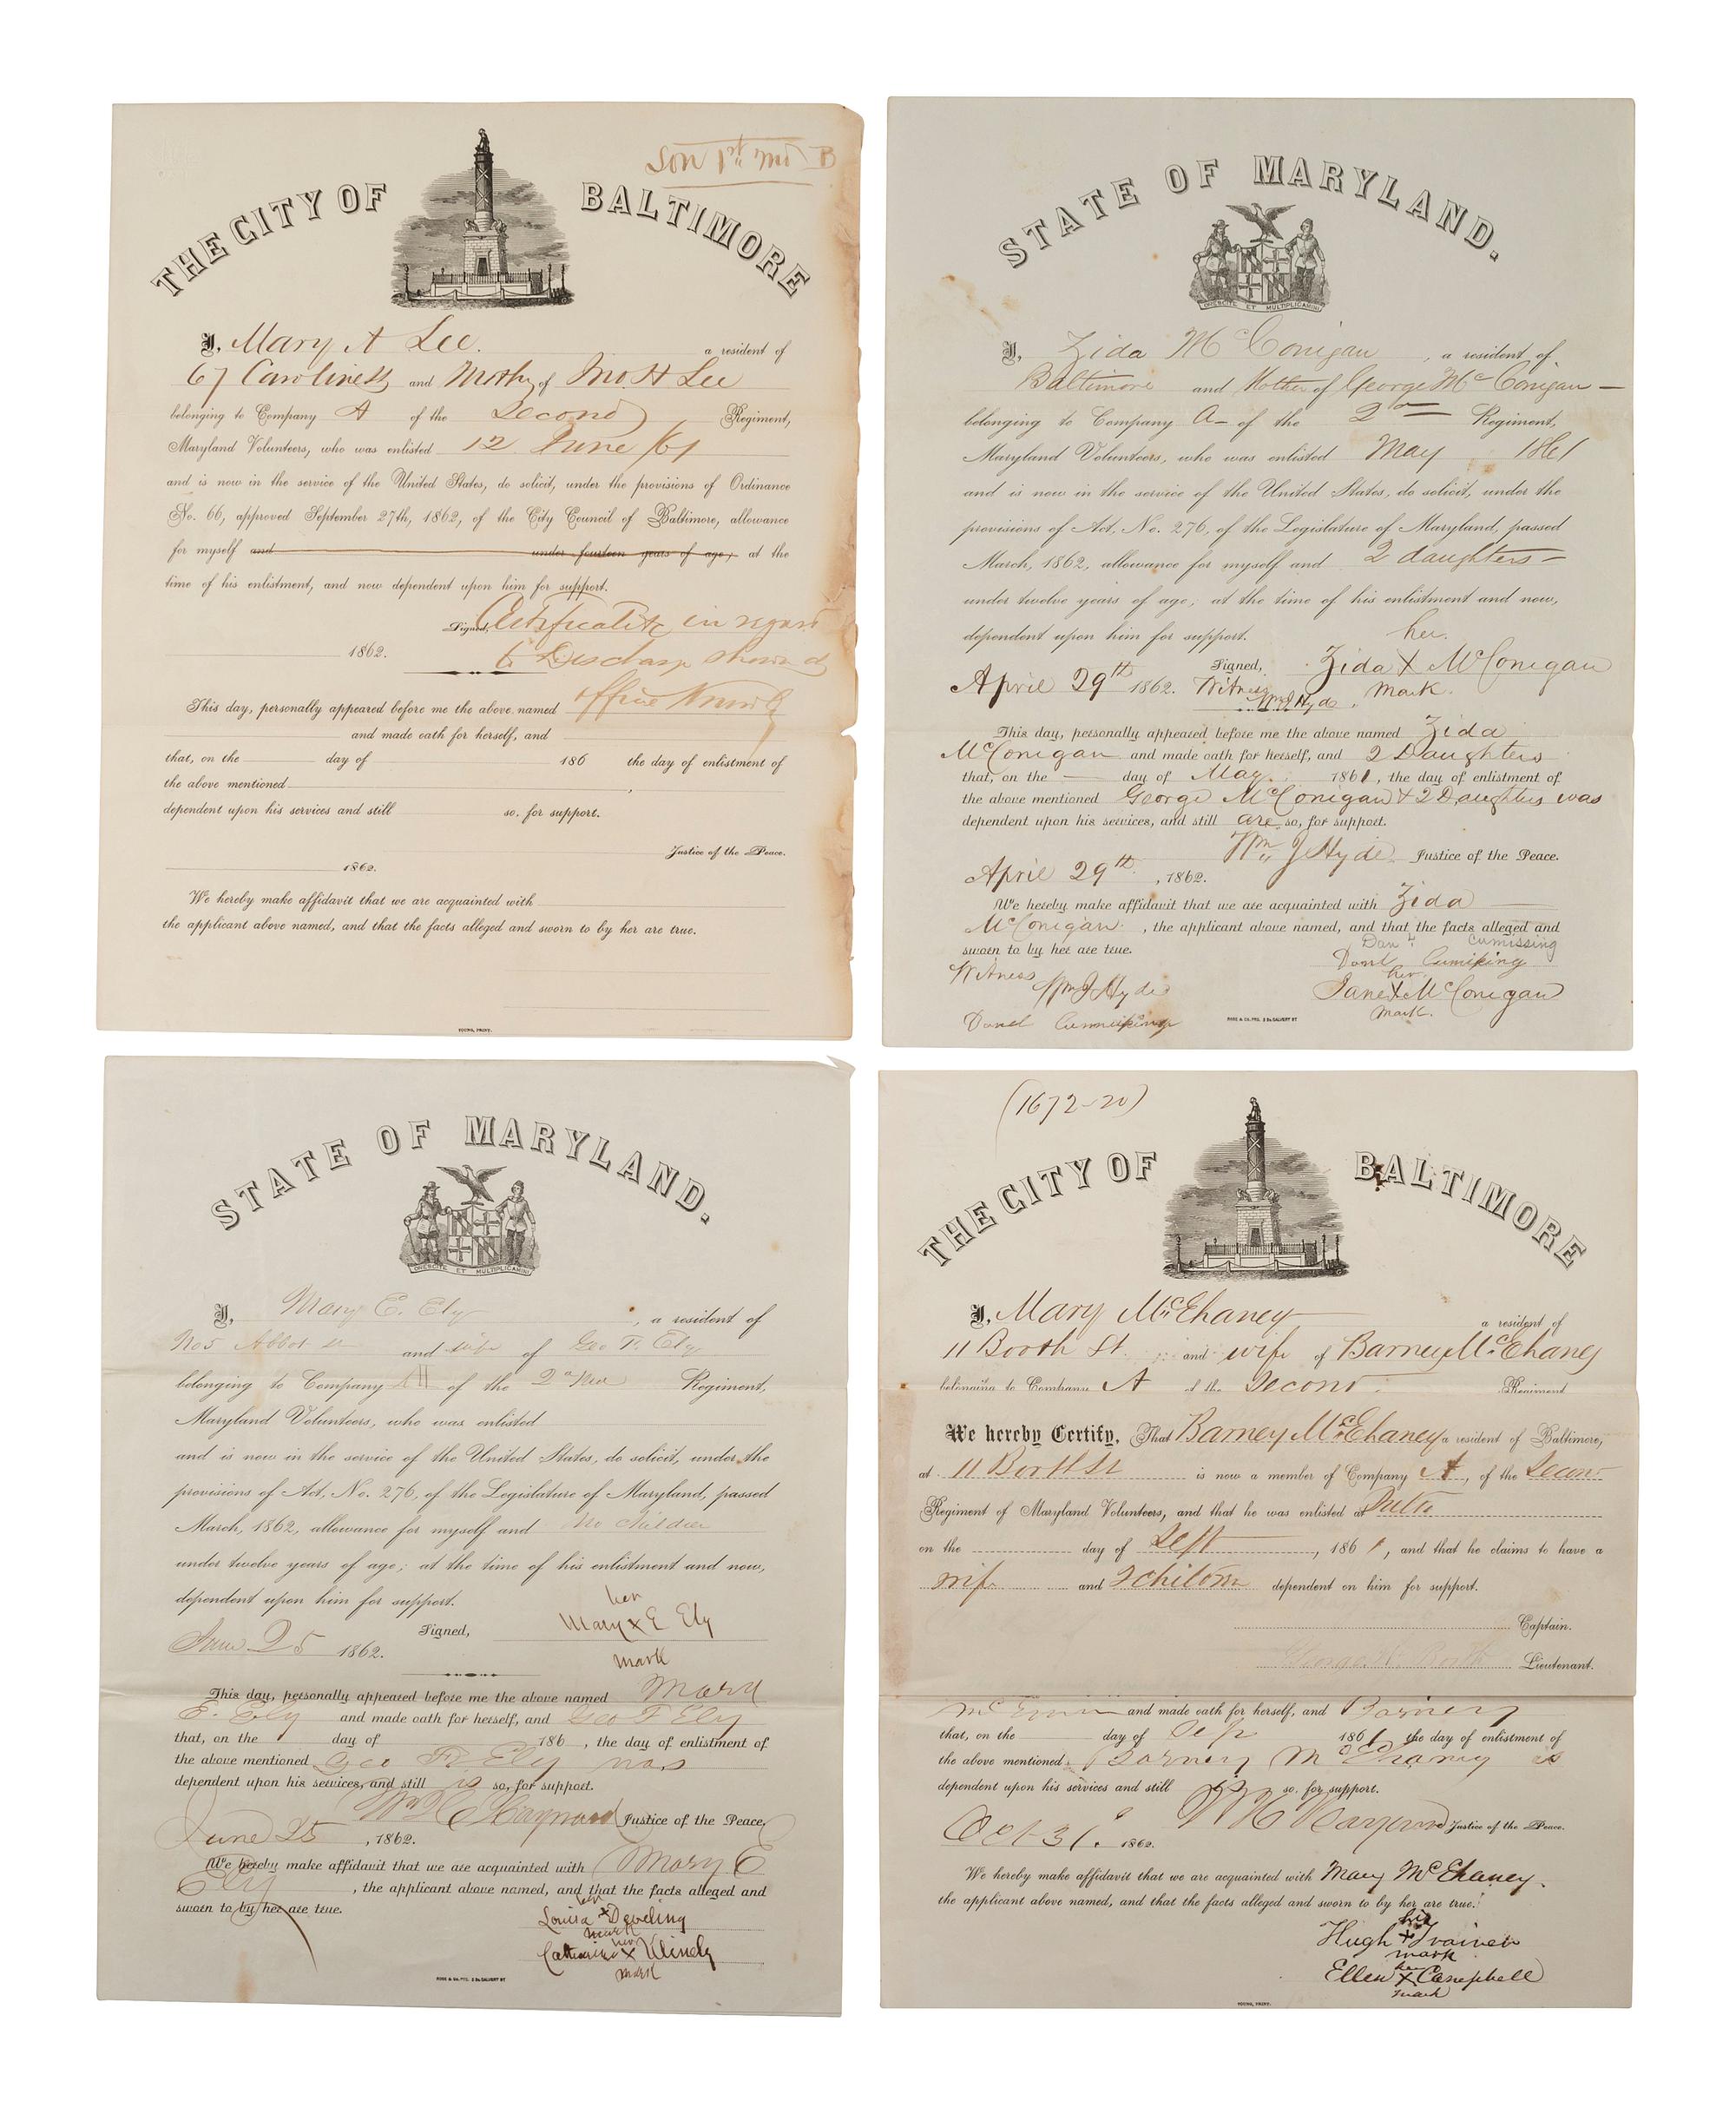 Son 1st mo B
THE CITY OF BALTIMORE
I, Mary A Lee. a resident of
67 Caroline St and Mother of Jno. H Lee
belonging to Company A of the Second Regiment,
Maryland Volunteers, who was enlisted 12 June /61
and is now in the service of the United States, do solicit, under the provisions of Ordinance
No. 66, approved September 27th, 1862, of the City Council of Baltimore, allowance
for myself and under fourteen years of age, at the
time of his enlistment, and now dependent upon him for support.
Signed, Certificate in regard
1862. to Discharge shown at
This day, personally appeared before me the above named office
and made oath for herself, and
that, on the day of 186 the day of enlistment of
the above mentioned ,
dependent upon his services and still so, for support.
Justice of the Peace.
1862.
We hereby make affidavit that we are acquainted with
the applicant above named, and that the facts alleged and sworn to by her are true.
YOUNG, PRINT.
STATE OF MARYLAND.
CRESCITE ET MULTIPLICAMINI
I, Zida McConigan, a resident of
Baltimore and Mother of George McConigan
belonging to Company A of the 2nd Regiment,
Maryland Volunteers, who was enlisted May 1861
and is now in the service of the United States, do solicit, under the
provisions of Act, No. 276, of the Legislature of Maryland, passed
March, 1862, allowance for myself and 2 daughters
under twelve years of age; at the time of his enlistment and now,
dependent upon him for support. her
Signed, Zida X McConigan
April 29th 1862. Witness Wm J Hyde mark.
This day, personally appeared before me the above named Zida
McConigan and made oath for herself, and 2 Daughters
that, on the day of May 1861, the day of enlistment of
the above mentioned George McConigan & 2 Daughters was
dependent upon his services, and still are so, for support.
Wm J Hyde Justice of the Peace.
April 29th, 1862.
We hereby make affidavit that we are acquainted with Zida
McConigan, the applicant above named, and that the facts alleged and
sworn to by her are true. Danl Cumissing
Witness Danl
Wm J Hyde her
Jane X McConigan
mark.
Danl
ROSE & CO. PRS. 2 So. CALVERT ST.
STATE OF MARYLAND.
CRESCITE ET MULTIPLICAMINI
I, Mary E. Ely, a resident of
No 5 Abbot st and wife of Geo F. Ely
belonging to Company H of the 2nd Regiment,
Maryland Volunteers, who was enlisted
and is now in the service of the United States, do solicit, under the
provisions of Act, No. 276, of the Legislature of Maryland, passed
March, 1862, allowance for myself and no children
under twelve years of age; at the time of his enlistment and now,
dependent upon him for support.
her
Signed, Mary x E Ely
June 25 1862. mark
This day, personally appeared before me the above named Mary
E. Ely and made oath for herself, and Geo F Ely
that, on the day of 186 , the day of enlistment of
the above mentioned Geo F. Ely was
dependent upon his services, and still is so, for support.
Wm H Hayward Justice of the Peace.
June 25, 1862.
We hereby make affidavit that we are acquainted with Mary E
Ely, the applicant above named, and that the facts alleged and
sworn to by her are true.
her
Louisa x Develing
mark
her
Catharine x
mark
ROSE & CO. PRS. 2 So. CALVERT ST.
(1672-20)
THE CITY OF BALTIMORE
I, Mary McEhaney a resident of
11 Booth St. and wife of Barney McEhaney
belonging to Company A of the Second Regiment
We hereby Certify, That Barney McEhaney a resident of Baltimore,
at 11 Booth St is now a member of Company A, of the Second
Regiment of Maryland Volunteers, and that he was enlisted at Balto.
on the day of Sept, 1861, and that he claims to have a
wife and children dependent on him for support.
Captain.
Lieutenant.
and made oath for herself, and Barney
that, on the day of Sep 1861 the day of enlistment of
the above mentioned Barney McEhaney is
dependent upon his services and still so, for support.
W H Hayward Justice of the Peace.
Oct 31. 1862.
We hereby make affidavit that we are acquainted with Mary McEhaney.
the applicant above named, and that the facts alleged and sworn to by her are true.
his
Hugh x Trainer
mark
her
Ellen x Campbell
mark
YOUNG, PRINT.